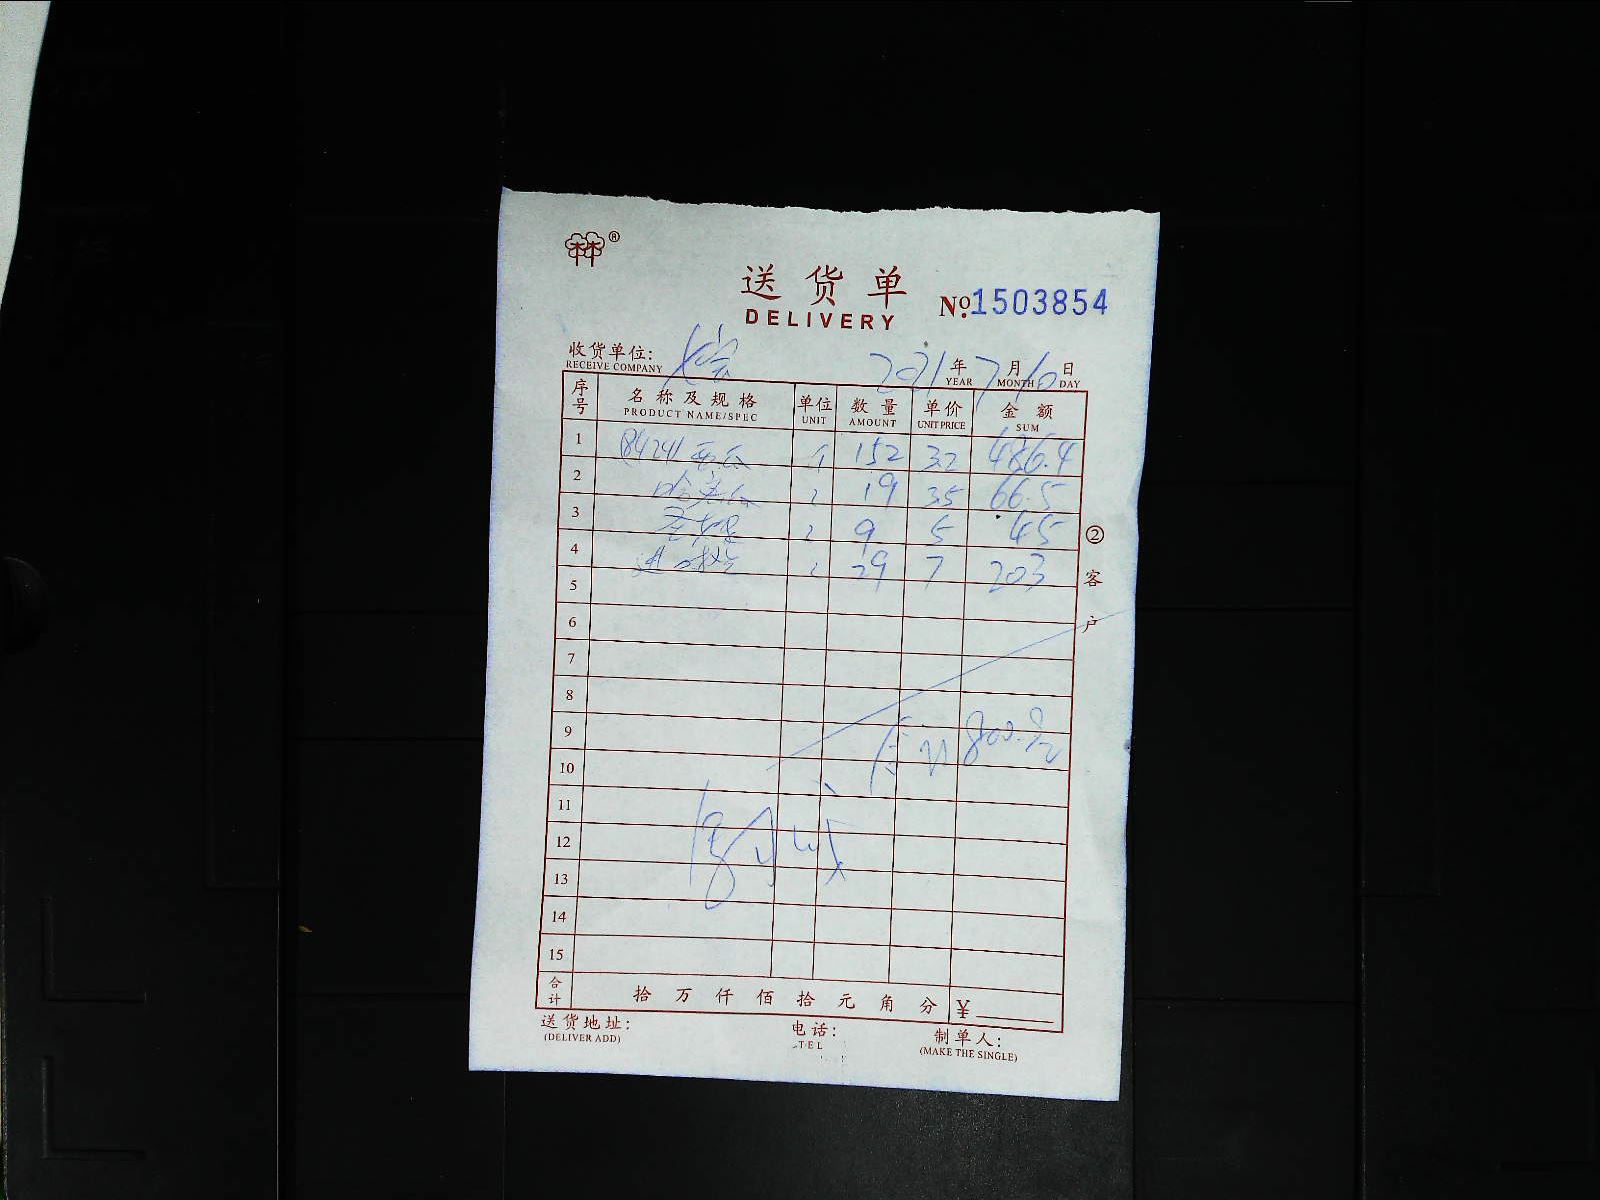 ®
送货单
DELIVERY
No.1503854
收货单位:
RECEIVE COMPANY
2021年7月10日
YEAR MONTH DAY
序号 名称及规格 单位 数量 单价 金额
PRODUCT NAME/SPEC UNIT AMOUNT UNIT PRICE SUM
1 8424西瓜 152 3.2 486.4
2 哈密瓜 19 3.5 66.5
3 9 5 45
4 进口 29 7 203
5
6
7
8
9 合计 800.9
10
11
12
13
14
15
合计 拾万仟佰拾元角分 ¥
②客户
送货地址: 电话: 制单人:
(DELIVER ADD) TEL (MAKE THE SINGLE)